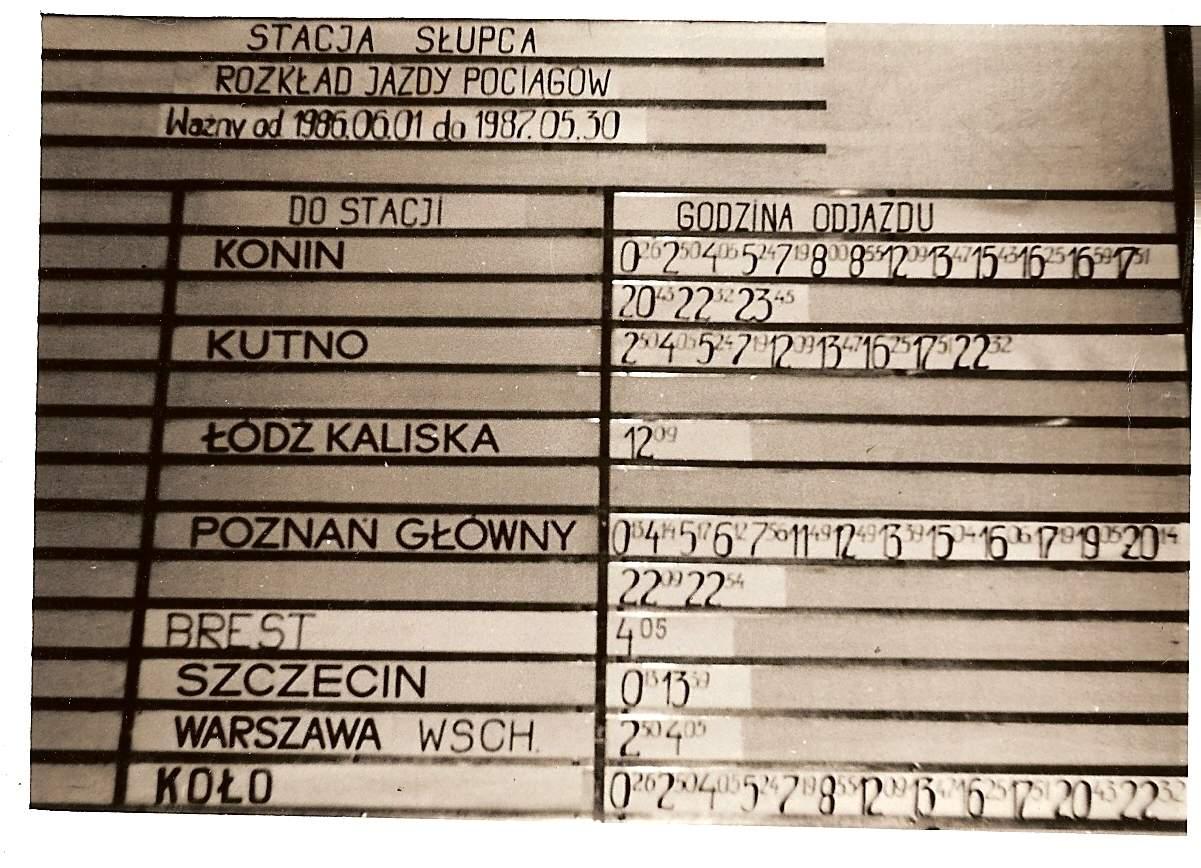 STACJA SŁUPCA
ROZKŁAD JAZDY POCIĄGÓW
Ważny od 1986.06.01 do 1987.05.30
DO STACJI GODZINA ODJAZDU
KONIN 0²⁶ 2⁵⁰ 4⁰⁵ 5²⁴ 7¹⁹ 8⁰⁰ 8⁵⁵ 12⁰⁹ 13⁴⁷ 15⁴³ 16²⁵ 16⁵⁹ 17⁵¹
20⁴³ 22³² 23⁴⁵
KUTNO 2⁵⁰ 4⁰⁵ 5²⁴ 7¹⁹ 12⁰⁹ 13⁴⁷ 16²⁵ 17⁵¹ 22³²
ŁÓDŹ KALISKA 12⁰⁹
POZNAŃ GŁÓWNY 0¹³ 4¹⁴ 5¹⁷ 6¹² 7⁵⁶ 11⁴⁹ 12⁴⁹ 13³⁹ 15⁰⁴ 16⁰⁶ 17¹⁹ 19⁰⁵ 20¹⁴
22⁰⁹ 22⁵⁴
BREST 4⁰⁵
SZCZECIN 0¹³ 13³⁹
WARSZAWA WSCH. 2⁵⁰ 4⁰⁵
KOŁO 0²⁶ 2⁵⁰ 4⁰⁵ 5²⁴ 7¹⁹ 8⁵⁵ 12⁰⁹ 13⁴⁷ 16²⁵ 17⁵¹ 20⁴³ 22³²